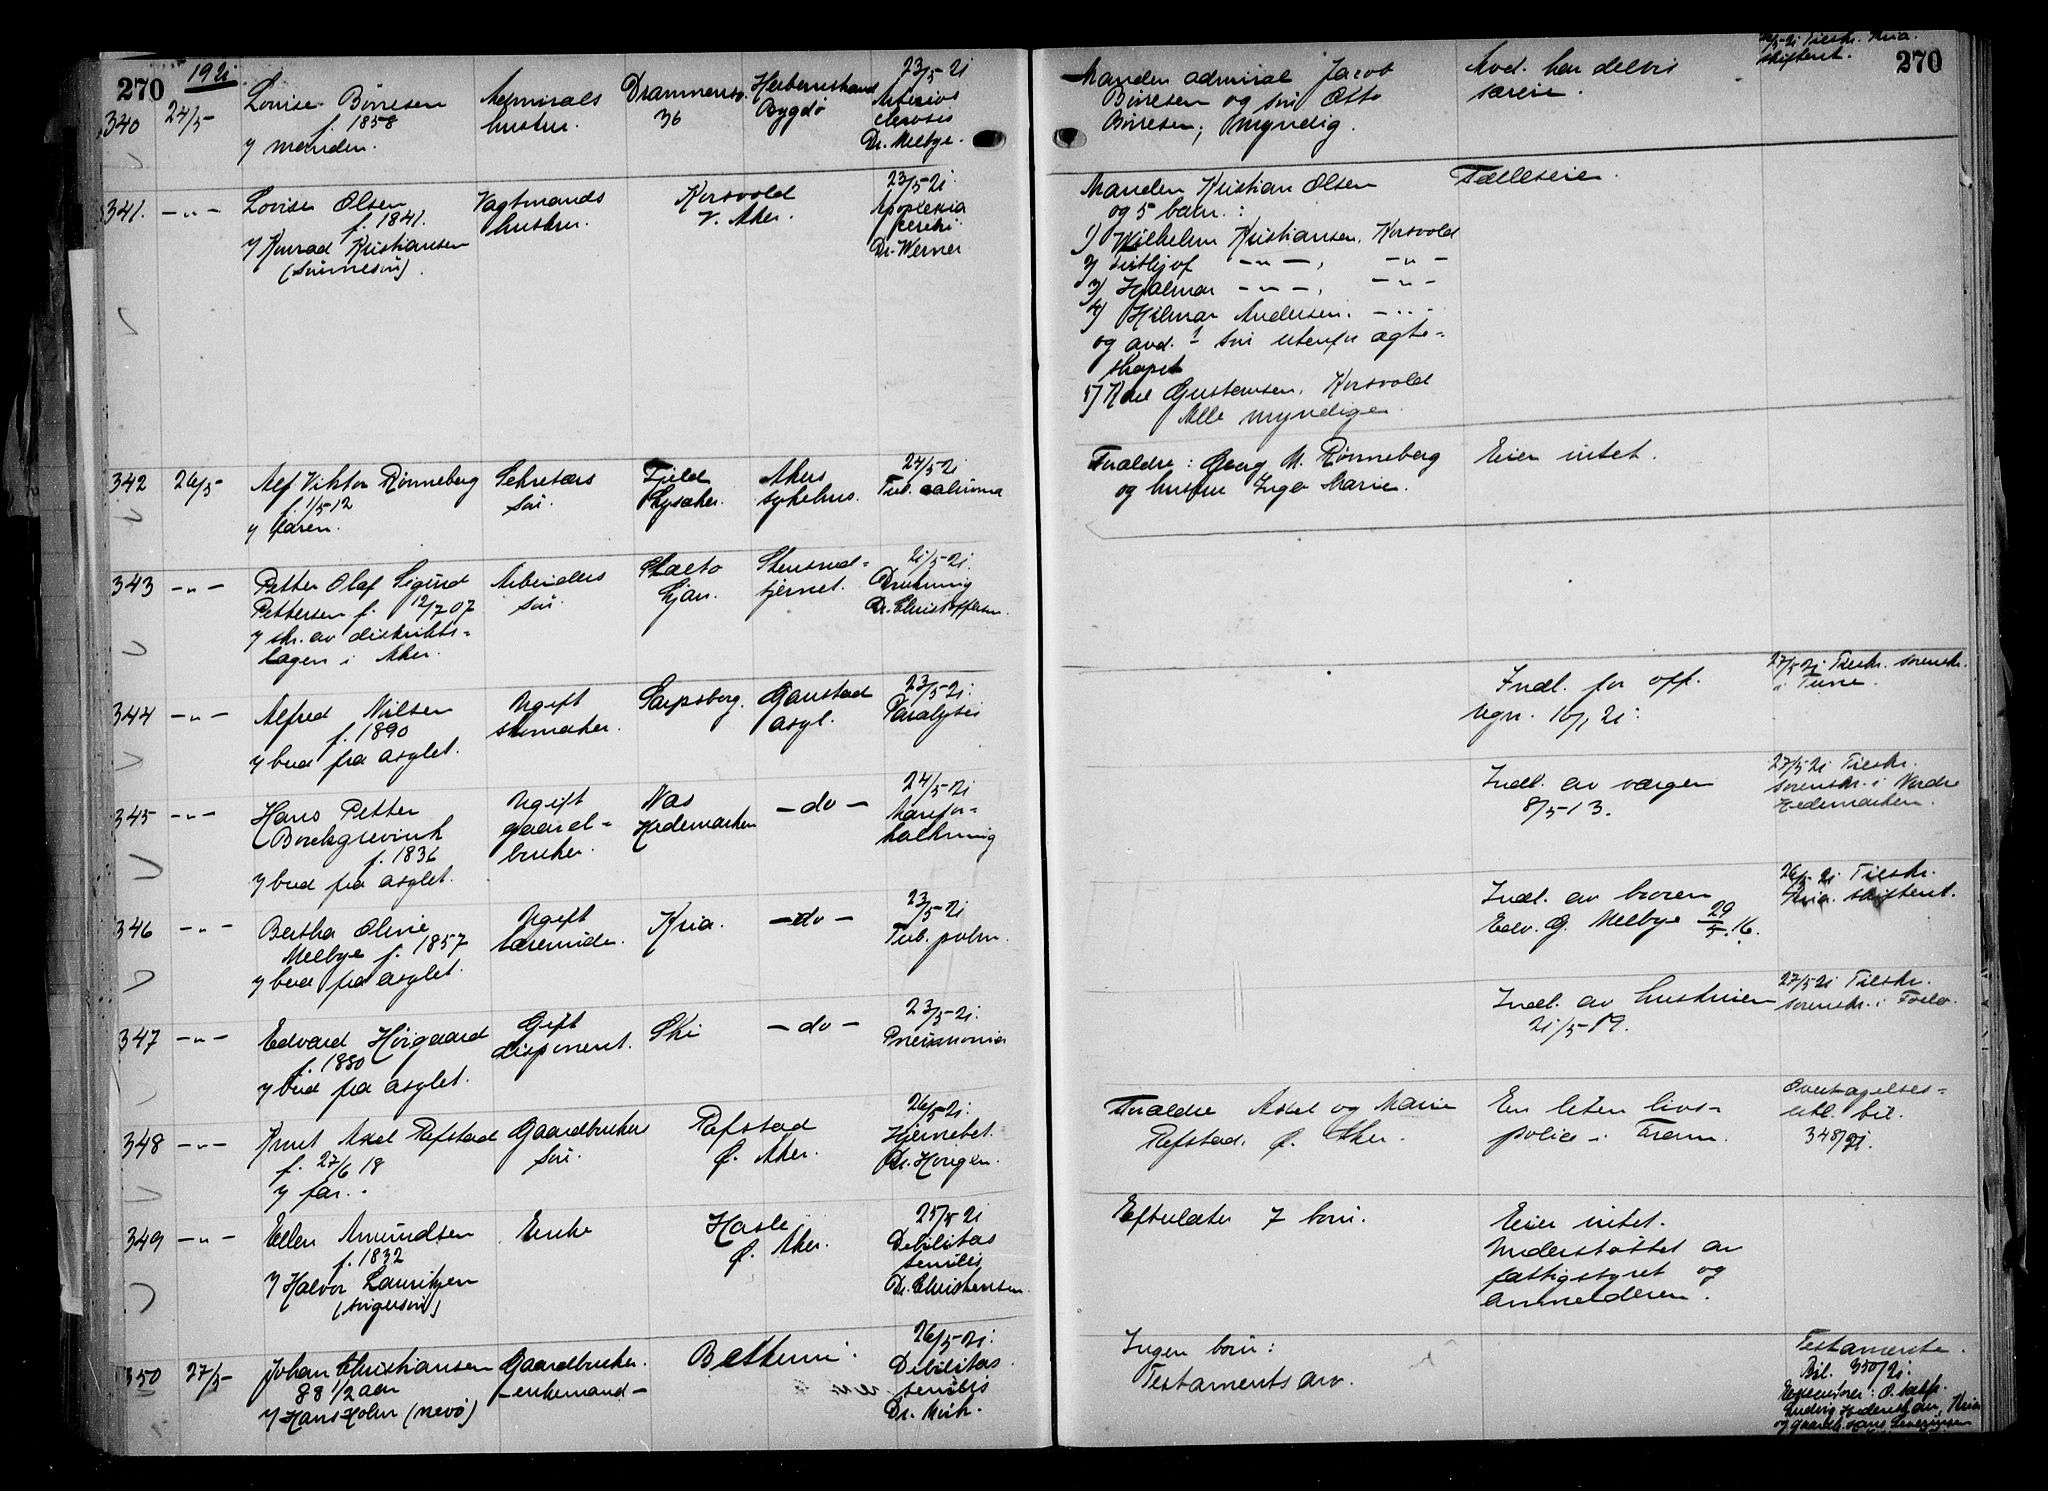 270
1921
270
340
24/5
Louise Börresen
f. 1858
v/ manden.
Admirals
hustru.
Drammensv.
36
Bygdö
23/5-21
Arterios
clerosis
Dr. Melbye.
Manden admiral Jacob
Börresen og sön Otto
Börresen, myndig.
Avd. har delvis
særeie.
26/5-21 Tilskr. Kria.
skifteret.
341.
-"-
Lovise Olsen
f. 1841.
v/ Konrad Kristiansen
(sönnesön).
Vagtmands
hustru.
Korsvold
V. Aker.
23/5-21
Apoplexia
cerebri.
Dr. Werner
Manden Kristian Olsen
og 5 barn.:
1) Wilhelm Kristiansen, Korsvold
2) Fritjof -"-, -"-
3) Hjalmar -"-, -"-
4) Hilmar Andersen. -"-
og avd.s sön utenfor ægte-
skapet
5) Karl Gustavsen, Korsvold
Alle myndige.
Fælleseie.
342
26/5
Alf Viktor Rönneberg
f. 1/5 12
v/ faren.
Sekretærs
sön.
Fjeld
Lysaker.
Akers
sykehus.
24/5-21
Tub.
Forældre: Georg M. Rönneberg
og hustru Inga Marie.
Eier intet.
343
-"-
Petter Olaf Sigurd
Pettersen f. 12/7 07
v/ skr. av distrikts-
lægen i Aker.
Arbeiders
sön.
Ljan.
Stensrud-
tjernet.
21/5-21.
Drukning
Dr. Christoffersen.
344
-"-
Alfred Nilsen
f. 1890
v/ bud fra asylet.
Ugift
skomaker.
Sarpsborg.
Gaustad
asyl.
23/5-21.
Paralysis
Indl. for off.
regn. 10/1 21.
27/5-21 Tilskr. sorenskr.
i Tune.
345
-"-
Hans Petter
Borchgrevink
f. 1836
v/ bud fra asylet.
Ugift
gaard-
bruker.
Nas
Hedemarken
-do-
24/5-21
Aarefor-
kalkning
Indl. av værgen
8/5-13.
27/5 21 Tilskr.
sorenskr. i Nordre
Hedemarken.
346
-"-
Bertha Oline
Melbye f. 1857
v/ bud fra asylet.
Ugift
lærerinde.
Kria.
-do-
23/5-21
Tub. pulm.
Indl. av broren
Edv. G. Melbye 29/5.16.
26/5 21 Tilskr.
Kria. skifteret.
347
-"-
Edvard Hörgaard
f. 1880
v/ bud fra asylet.
Gift
disponent.
Ski
-do-
23/5-21.
Pneumonia
Indl. av hustruen
21/5-19.
27/5 21 Tilskr.
sorenskr. i Follo.
348
-"-
Knut Axel Refstad
f. 27/6 18
v/ far.
Gaardbrukers
sön.
Refstad
Ö. Aker.
26/5-21.
Hjernebet.
Dr. Hougen.
Forældre Axel og Marie
Refstad, Ö. Aker.
En liten livs-
police i Fram.
Overtagelses-
erkl. bil.
348/21.
349
-"-
Ellen Amundsen
f. 1832
v/ Halvor Lauritzen
(svigersön)
Enke
Hasle
Ö. Aker.
25/5 21
Debilitas
senilis
Dr. Christensen.
Efterlater 7 barn.
Eier intet.
Understöttet av
fattigstyret og
anmelderen.
350
27/5
Johan Christiansen
88 1/2 aar
v/ Hans Holm (nevö)
Gaardbruker.
-enkemand-
Bekkum.
26/5-21.
Debilitas
senilis
Ingen barn:
Testamentsarv.
Testamente.
Bil. 350/21.